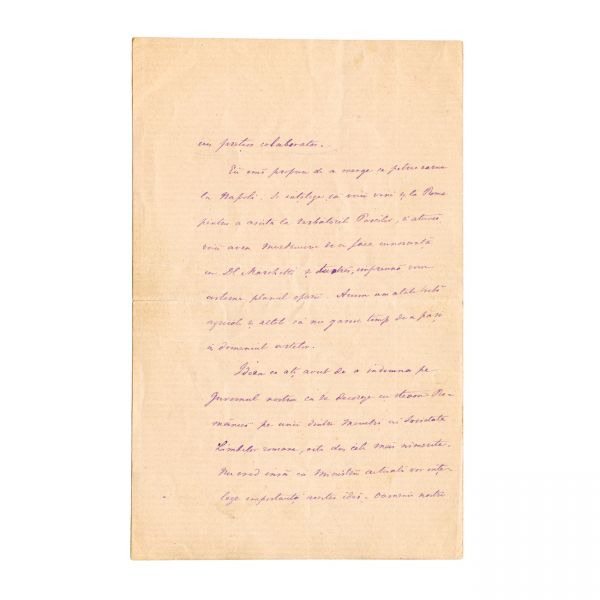 un prețios colaborator.
Eu îmi propun de a merge a petrece iarna
la Napoli. Se înțelege că voiu veni și la Roma
pentru a asista la serbătorile Paștilor, și atunci
voiu avea mulțumirea de a face cunoscență
cu Dl Marchetti și împreună vom
planul operii. Acum am atâtea
și altele că nu găsesc timp de a păși
în domeniul artelor.
Ideea ce ați avut de a îndemna pe
Guvernul nostru ca se decoreze cu steaua Ro-
mâniei pe unii dintre membrii ai Societății
Limbelor romane, este din cele mai nimerite.
Nu cred însă ca Miniștrii actuali vor înțe-
lege importanța acestei idei. Oamenii noștri